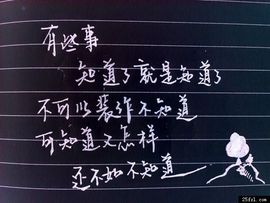 有些事
知道了就是知道了
不可以装作不知道
可知道又怎样
还不如不知道
25fzl.com